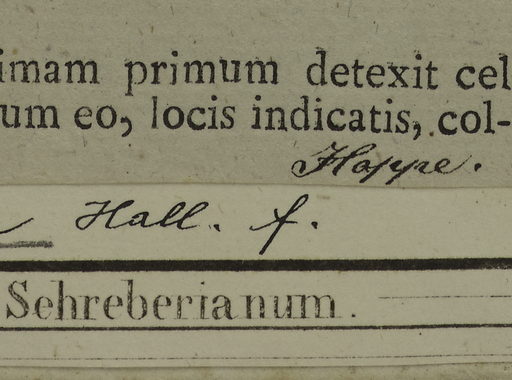 imam primum detexit cel
um eo, locis indicatis, col-
Hoppe.
Hall. f.
Schreberianum.